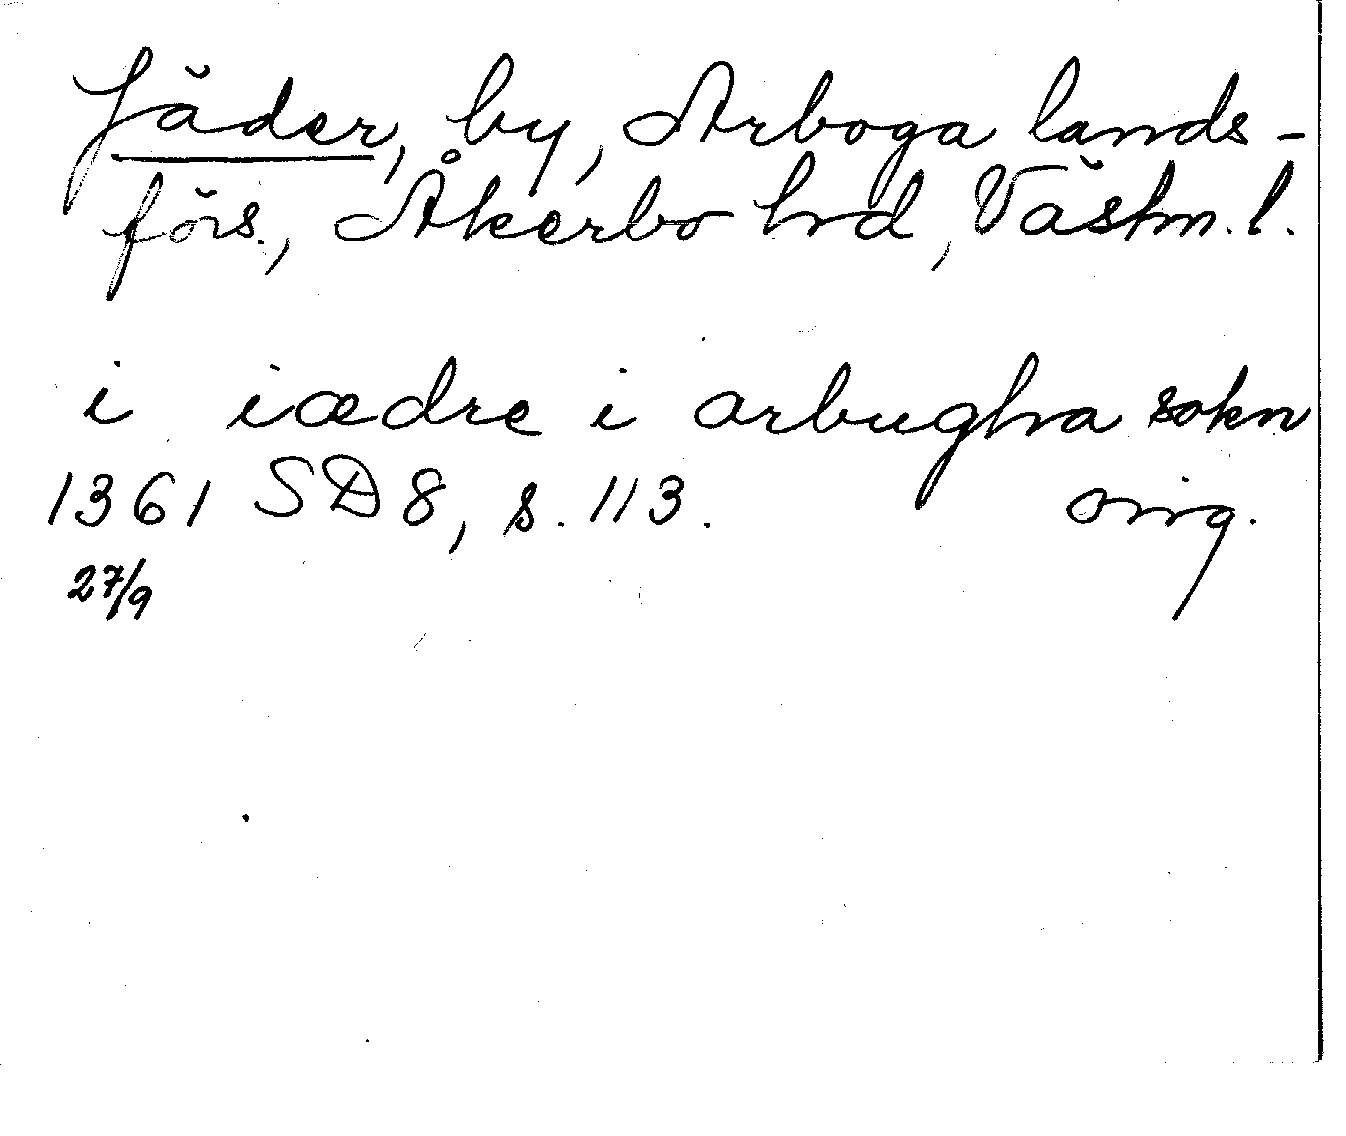 Jäder, by, Arboga lands-
förs., Åkerbo hd, Västm. l.
i iædre i arbugha sokn
1361 SD 8, s. 113. orig.
27/9